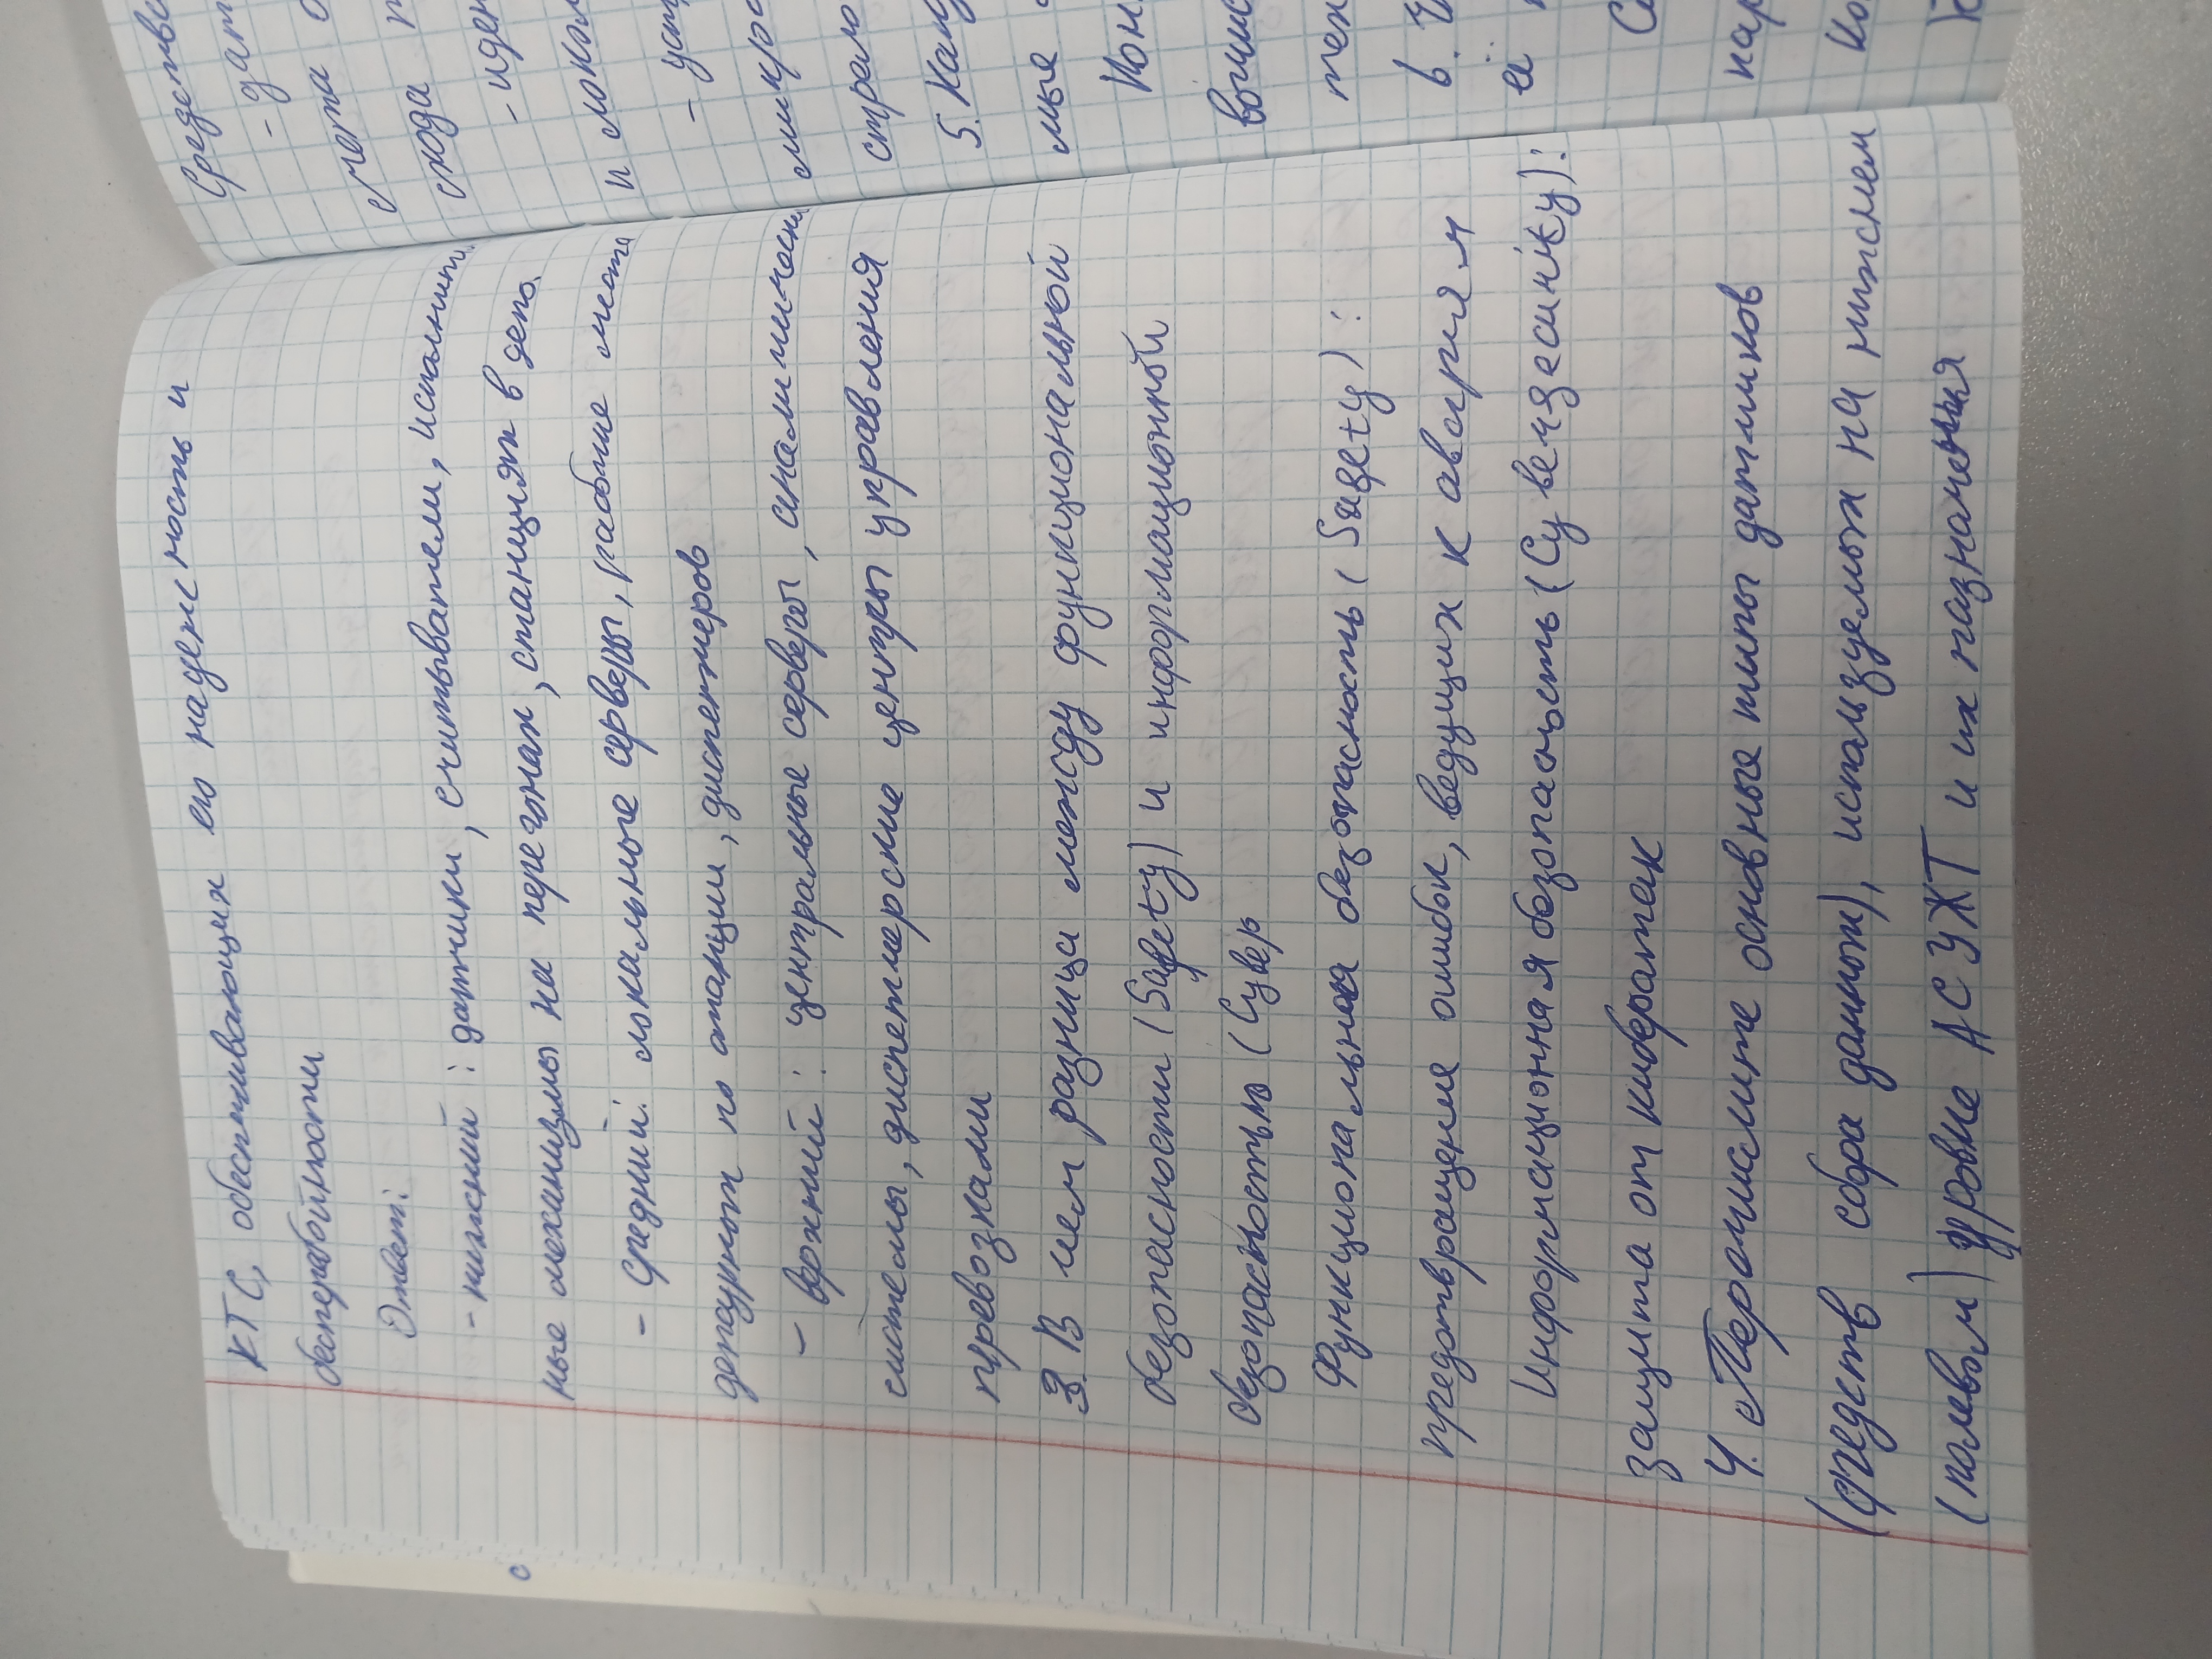 КТС, обеспечивающих его надежность и
бесперебойности
Ответ:
- нижний : датчики, считыватели, исполнит.
ные механизмы на перегонах, станциях в депо.
- Средний: локальные серверы, рабочие места
дежурных по станции, диспетчеров
- верхний : центральные серверы, аналитически
системы, диспетчерские центры управления
превозками
3. В чем разница между функциональной
безопасности (Safety) и информационной
безопасностью (Cyber
Функциональная безопасность (Safety) :
предотвращение ошибок, ведущих к авариям
Информационная безопасность
защита от кибератак
4. Перечислите основные типы датчиков
(средств сбора данных), используемых на нижнем
(полевом) уровне АСУЖТ и их назначения
Средства
- дат
счета о
схода
- иден
и локом
- уст
микро
стрело
5. Кану
мые
Кон
вогнис
тен
6.
ей
нар
Ко